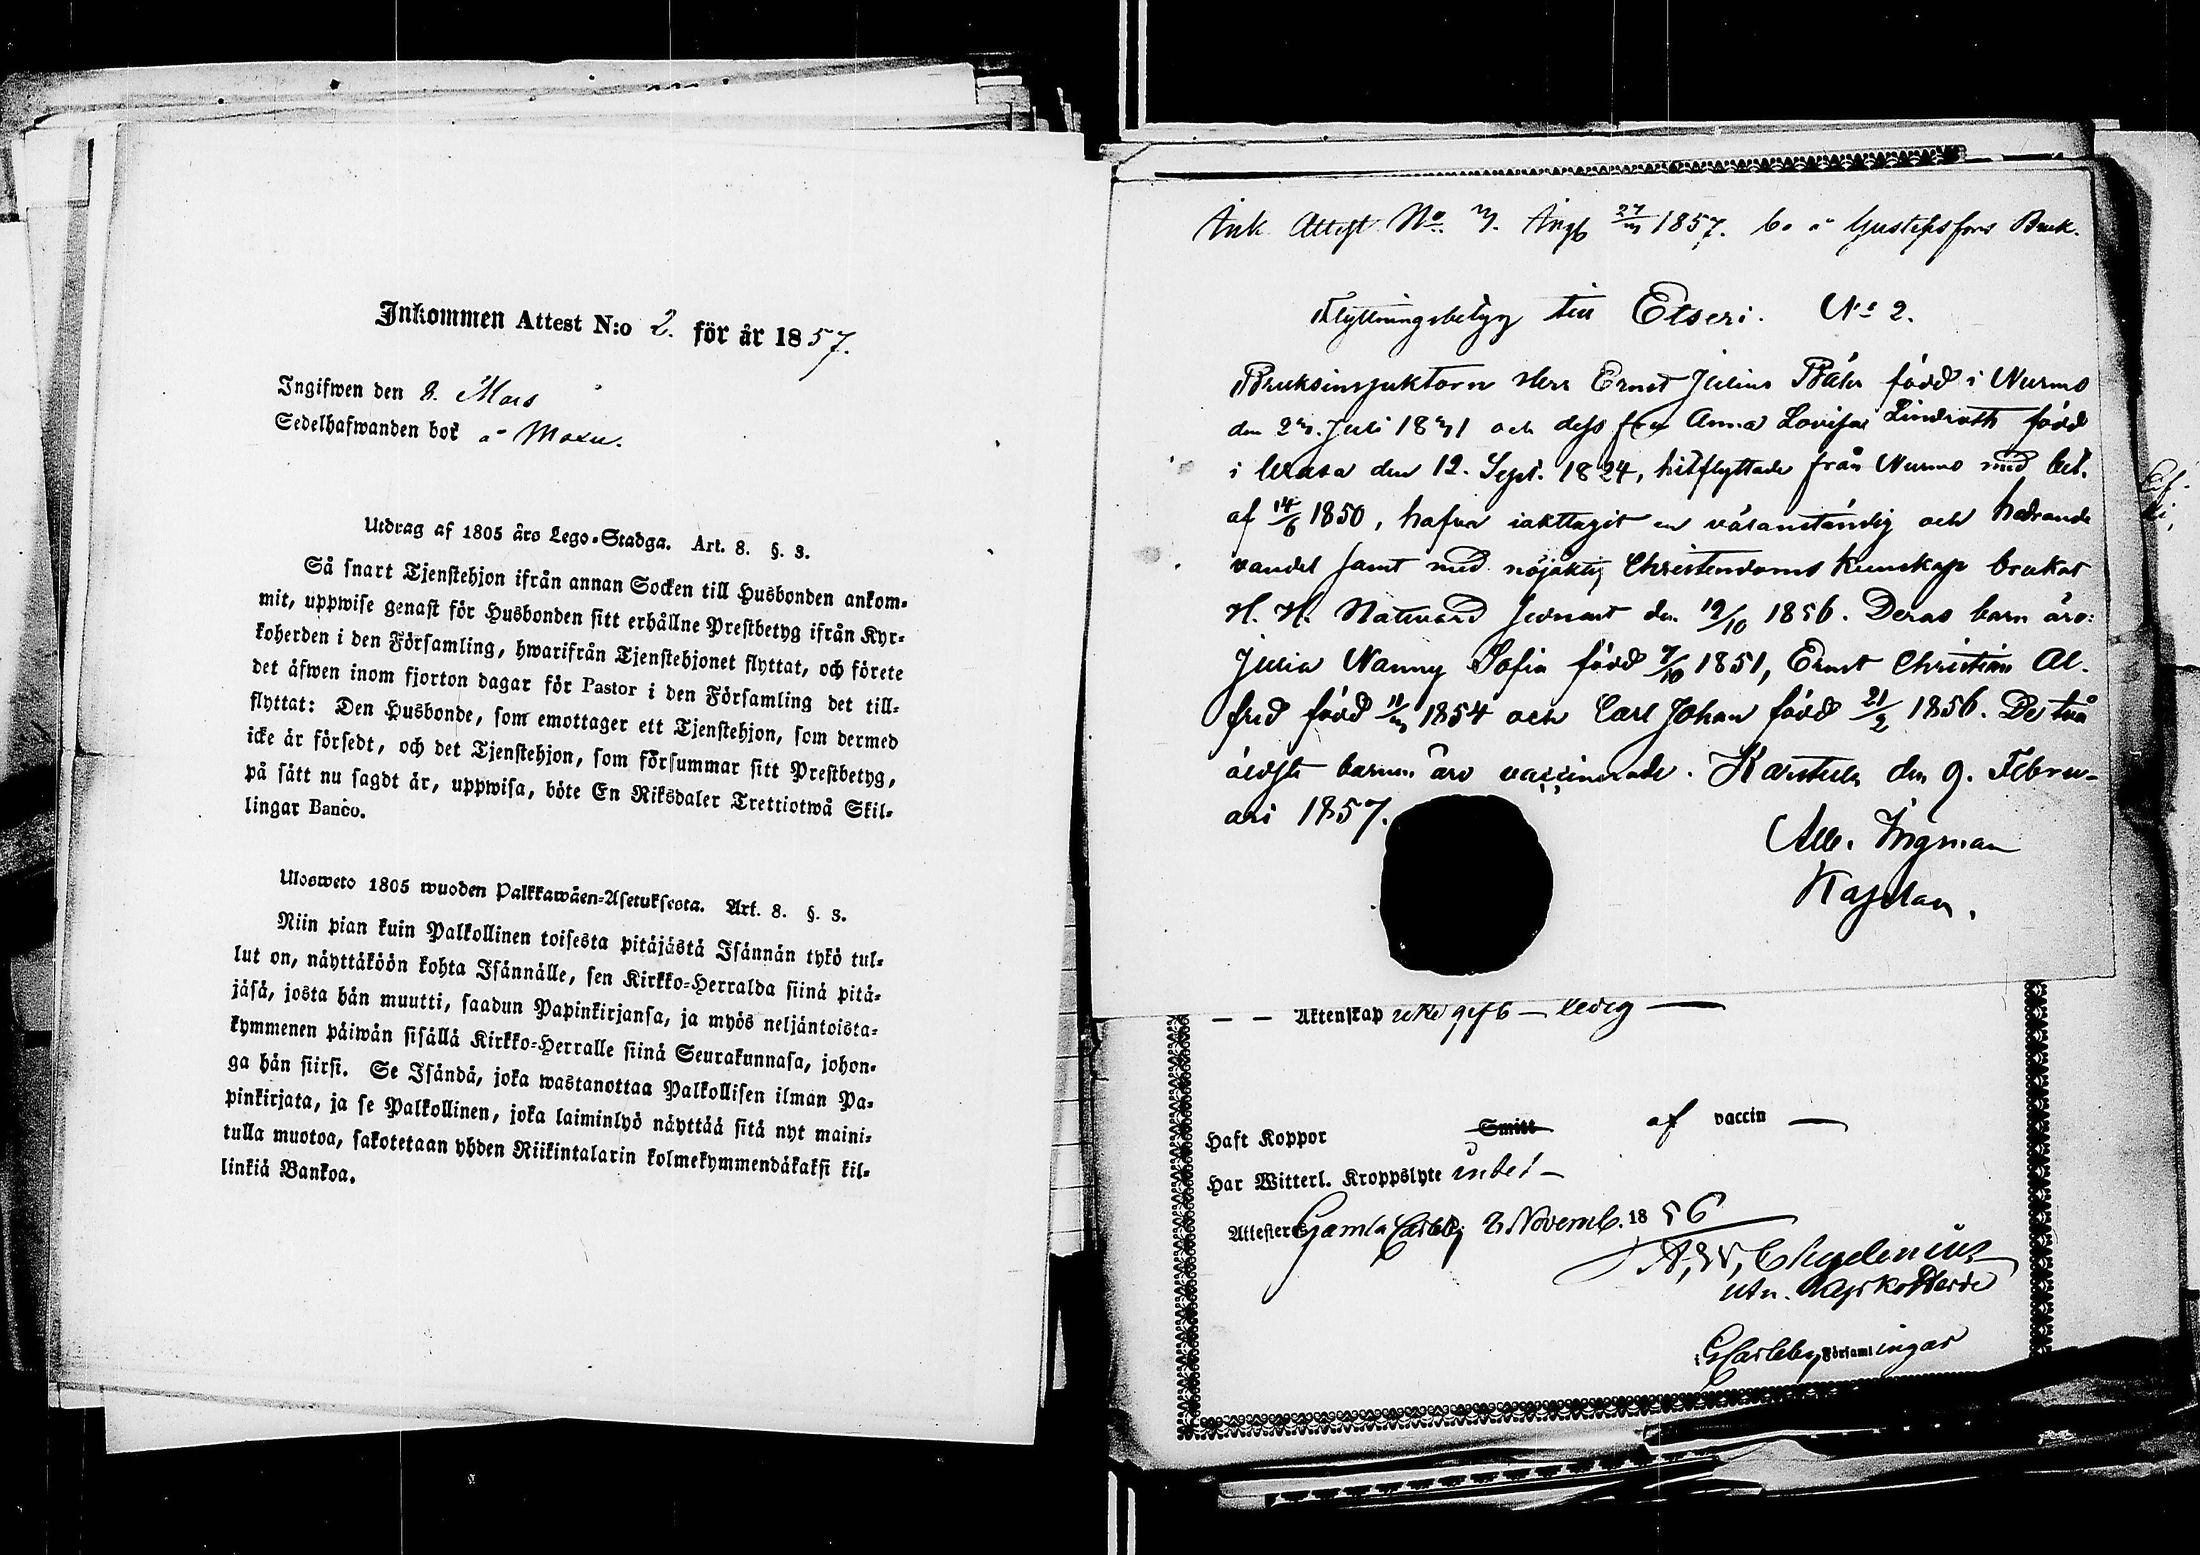 Inkommen Attest N:o 2. för år 1857.
Ingifwen den 8. Mars
Sedelhafwanden bor å Moxu.
Utdrag af 1805 års Lego-Stadga. Art. 8. §. 3.
Så snart Tjenstehjon ifrån annan Socken till Husbonden ankom-
mit, uppwise genast för Husbonden sitt erhållne Prestbetyg ifrån Kyr-
koherden i den Församling, hwarifrån Tjenstehjonet flyttat, och förete
det äfwen inom fjorton dagar för Pastor i den Församling det till-
flyttat: Den Husbonde, som emottager ett Tjenstehjon, som dermed
icke är försedt, och det Tjenstehjon, som försummar sitt Prestbetyg,
på sätt nu sagdt är, uppwisa, böte En Riksdaler Trettiotwå Skil-
lingar Banco.
Ulosweto 1805 wuoden Palkkawäen-Asetuksesta. Art. 8. §. 3.
Niin pian kuin Palkollinen toisesta pitäjästä Isännän tykö tul-
lut on, näyttäköön kohta Isännälle, sen Kirkko-Herralda siinä pitä-
jäsä, josta hän muutti, saadun Papinkirjansa, ja myös neljäntoista-
kymmenen päiwän sisällä Kirkko-Herralle siinä Seurakunnasa, johon-
ga hän siirsi. Se Isändä, joka wastanottaa Palkollisen ilman Pa-
pinkirjata, ja se Palkollinen, joka laiminlyö näyttää sitä nyt maini-
tulla muotoa, sakotetaan yhden Riikintalarin kolmekymmendäkaksi kil-
linkiä Bankoa.
Ink. Attest No 3. Ingb 27/3 1857. bo å Gustafsfors Bruk.
Flyttningsbetyg till Etseri. No 2.
Bruksinspektorn Herr Ernst Julius Bähr född i Nurmo
den 23. Juli 1831 och dess fru Anna Lovisa Lindroth född
i Wasa den 12. Sept. 1824, hitflyttade från Nurmo med bet.
af 14/6 1850, hafva iakttagit en väranständig och hedrande
vandel samt med nöjaktig Christendoms kunskap brukat
H. H. Nattvard senast den 19/10 1856. Deras barn äro:
Julia Nanny Sofia född 7/10 1851, Ernst Christian Al-
fred född 11/3 1854 och Carl Johan född 21/2 1856. De två
äldsta barnen äro vaccinerade. Karstula den 9. Febru-
ari 1857.
Alb. Ingman
Kaplan.
— — Äktenskap icke gift — ledig —
Haft Koppor Smitt af vaccin —
Har Witterl. Kroppslyte intet —
Attesterar Gamla Carleby 2 Novemb. 1856
A, W, Chydenius
utn. Kyrkoherde
i GCarleby Församlingar